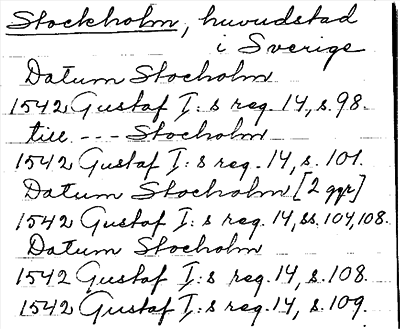 Stockholm, huvudstad
i Sverige
Datum Stocholm
1542 Gustaf I:s reg. 14, s. 98.
till --- Stocholm
1542 Gustaf I:s reg. 14, s. 101.
Datum Stocholm [2 ggr]
1542 Gustaf I:s reg. 14, ss. 104, 108.
Datum Stocholm
1542 Gustaf I:s reg. 14, s. 108.
1542 Gustaf I:s reg. 14, s. 109.